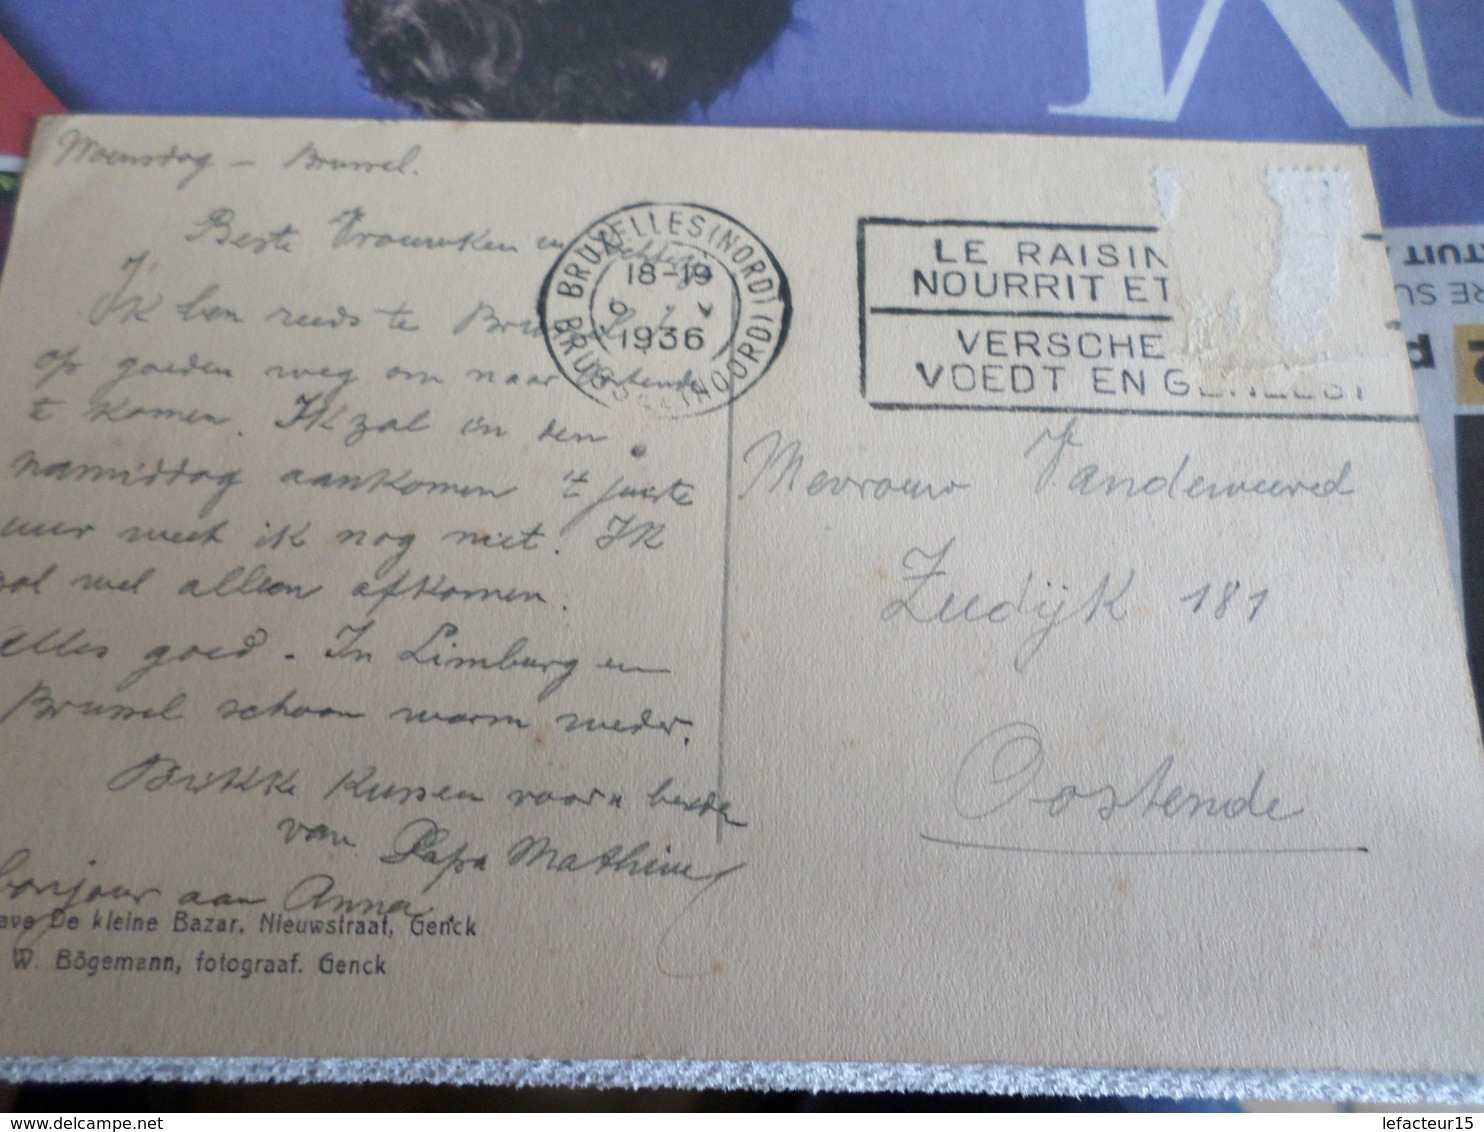 Woensdag – Brussel.
Beste Vrouwken en
Ik ben reeds te
op goeden weg om naar Oostende
te komen. Ik zal in den
namiddag aankomen 't juiste
uur weet ik nog niet. Ik
zal wel alleen afkomen.
Alles goed. In Limburg en
Brussel schoon warm weder.
Dikke Kussen voor u beiden
van Papa Mathieu
bonjour aan Anna
ave De kleine Bazar, Nieuwstraat, Genck
W. Bögemann, fotograaf. Genck
BRUXELLES (NORD)
18-19
1936
BRUSSEL (NOORD)
LE RAISIN
NOURRIT ET
VERSCHE
VOEDT EN GENEEST
Mevrouw Vandeweerd
Zeedijk 181
Oostende
M
TUIT A
RE SU
P
2
lefacteur15